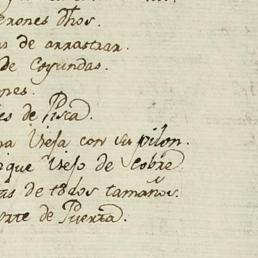 erones dhos.
as de arrastrar.
de Coyundas.
ones.
es de Pisca.
na Vieja con su pilon.
ique Viejo de Cobre
as de todos tamaños.
orte de Puerta.